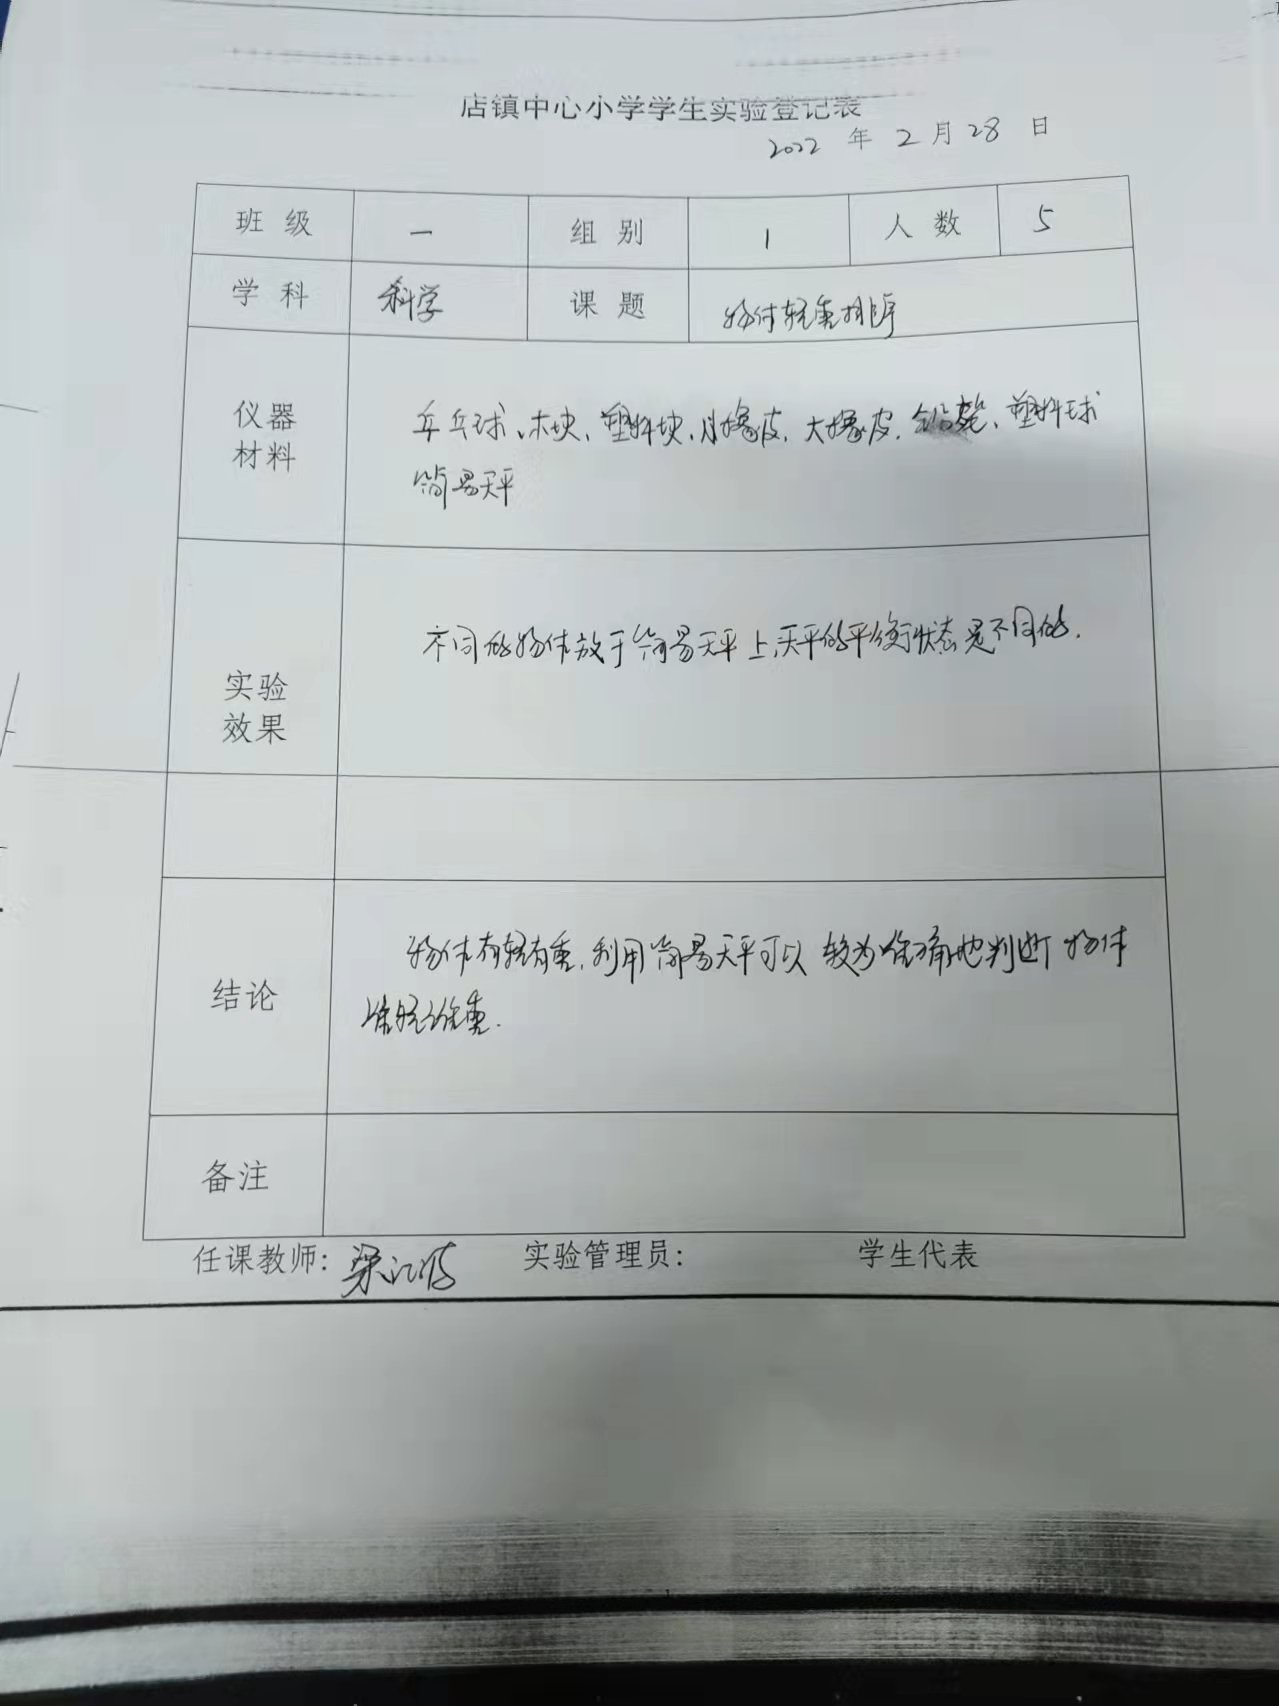 店镇中心小学学生实验登记表
2022 年 2 月 28 日
班 级 一 组 别 1 人 数 5
学 科 科学 课 题 物体轻重排序
仪器
材料
乒乓球、木块、塑料块、小橡皮、大橡皮、塑料球
简易天平
实验
效果
不同的物体放于简易天平上,天平的平衡状态是不同的.
结论
物体有轻有重,利用简易天平可以较为准确地判断物体
谁轻谁重.
备注
任课教师: 实验管理员: 学生代表